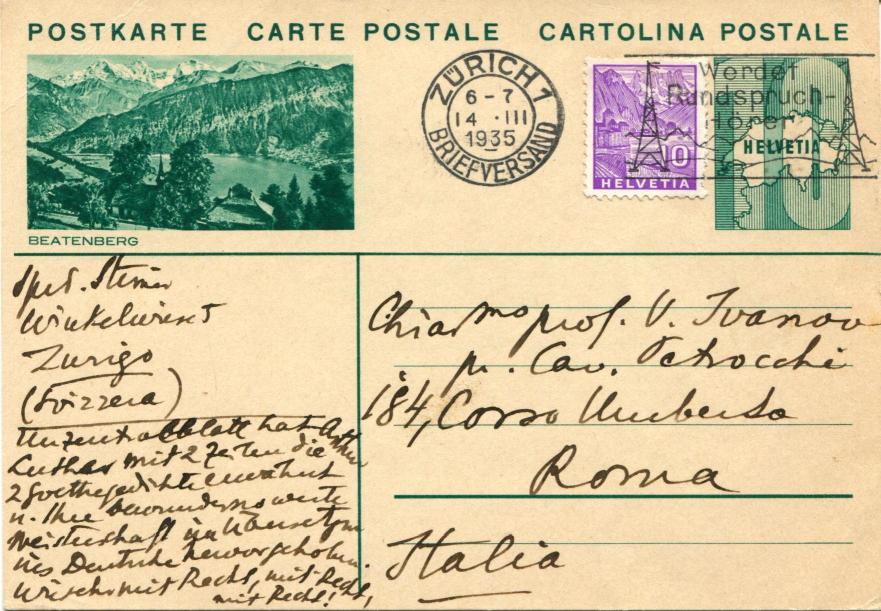 POSTKARTE CARTE POSTALE CARTOLINA POSTALE
ZÜRICH 1
6-7
14 · III
1935
BRIEFVERSAND
Werdet
Rundspruch-
Hörer
10
HELVETIA
HELVETIA
10
BEATENBERG
Sped. Steiner
Zurigo
(Svizzera)
Im Zentralblatt hat Arthur
Luther mit 2 Zeilen die
2 Goethegedichte erwähnt
u. Ihre bewundernswerte
Meisterschaft im Übersetzen
ins Deutsche hervorgehoben.
mit Recht, mit Recht,
mit Recht!
Chiarmo prof. V. Ivanov
pr. Cav. Petrocchi
184, Corso Umberto
Roma
Italia